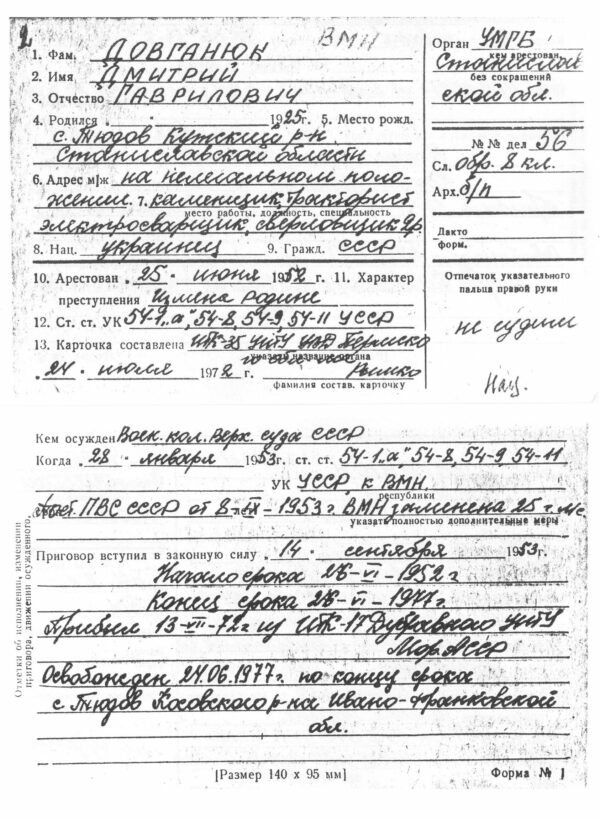 2
ВМН
1. Фам. ДОВГАНЮК
2. Имя ДМИТРИЙ
3. Отчество ГАВРИЛОВИЧ
4. Родился 1925 г. 5. Место рожд.
с. Тюдов Кутский р-н
Станиславской области
6. Адрес м/ж на нелегальном поло-
жении. 7. каменщик, тракторист
место работы, должность, специальность
электросварщик, сверловщик
8. Нац. украинец 9. Гражд. СССР
10. Арестован "25" июня 1952 г. 11. Характер
преступления Измена Родине
12. Ст. ст. УК 54-1 „а", 54-8, 54-9, 54-11 УССР
13. Карточка составлена ИТК-35 УИТУ УВД Пермско
указать название органа
"24" июля 1972 г.
фамилия состав. карточку
Орган УМГБ
кем арестован
Станислав
без сокращений
ской обл.
№ № дел 56
Сл. обр. 8 кл.
Арх. б/п
Дакто
форм.
Отпечаток указательного
пальца правой руки
не судим
Нац.
Кем осужден Воен. кол. Верх. суда СССР
Когда "28" января 1953 г. ст. ст. 54-1 „а", 54-8, 54-9, 54-11
УК УССР к ВМН.
республики
ПВС СССР от 8-IX-1953 г. ВМН заменена 25 г.
указать полностью дополнительные меры
Приговор вступил в законную силу "14" сентября 1953 г.
Начало срока 26-VI-1952 г
Конец срока 26-VI-1977 г.
Прибыл 13-VII-72 г. из ИТК-17 Дубравного УИТУ
Мор. АССР
Освобожден 24.06.1977 г. по концу срока
с Тюдов Косовского р-на Ивано-Франковской
обл.
Отметки об исполнении, изменении
приговора, движении осужденного.
[Размер 140 x 95 мм] Форма № 1